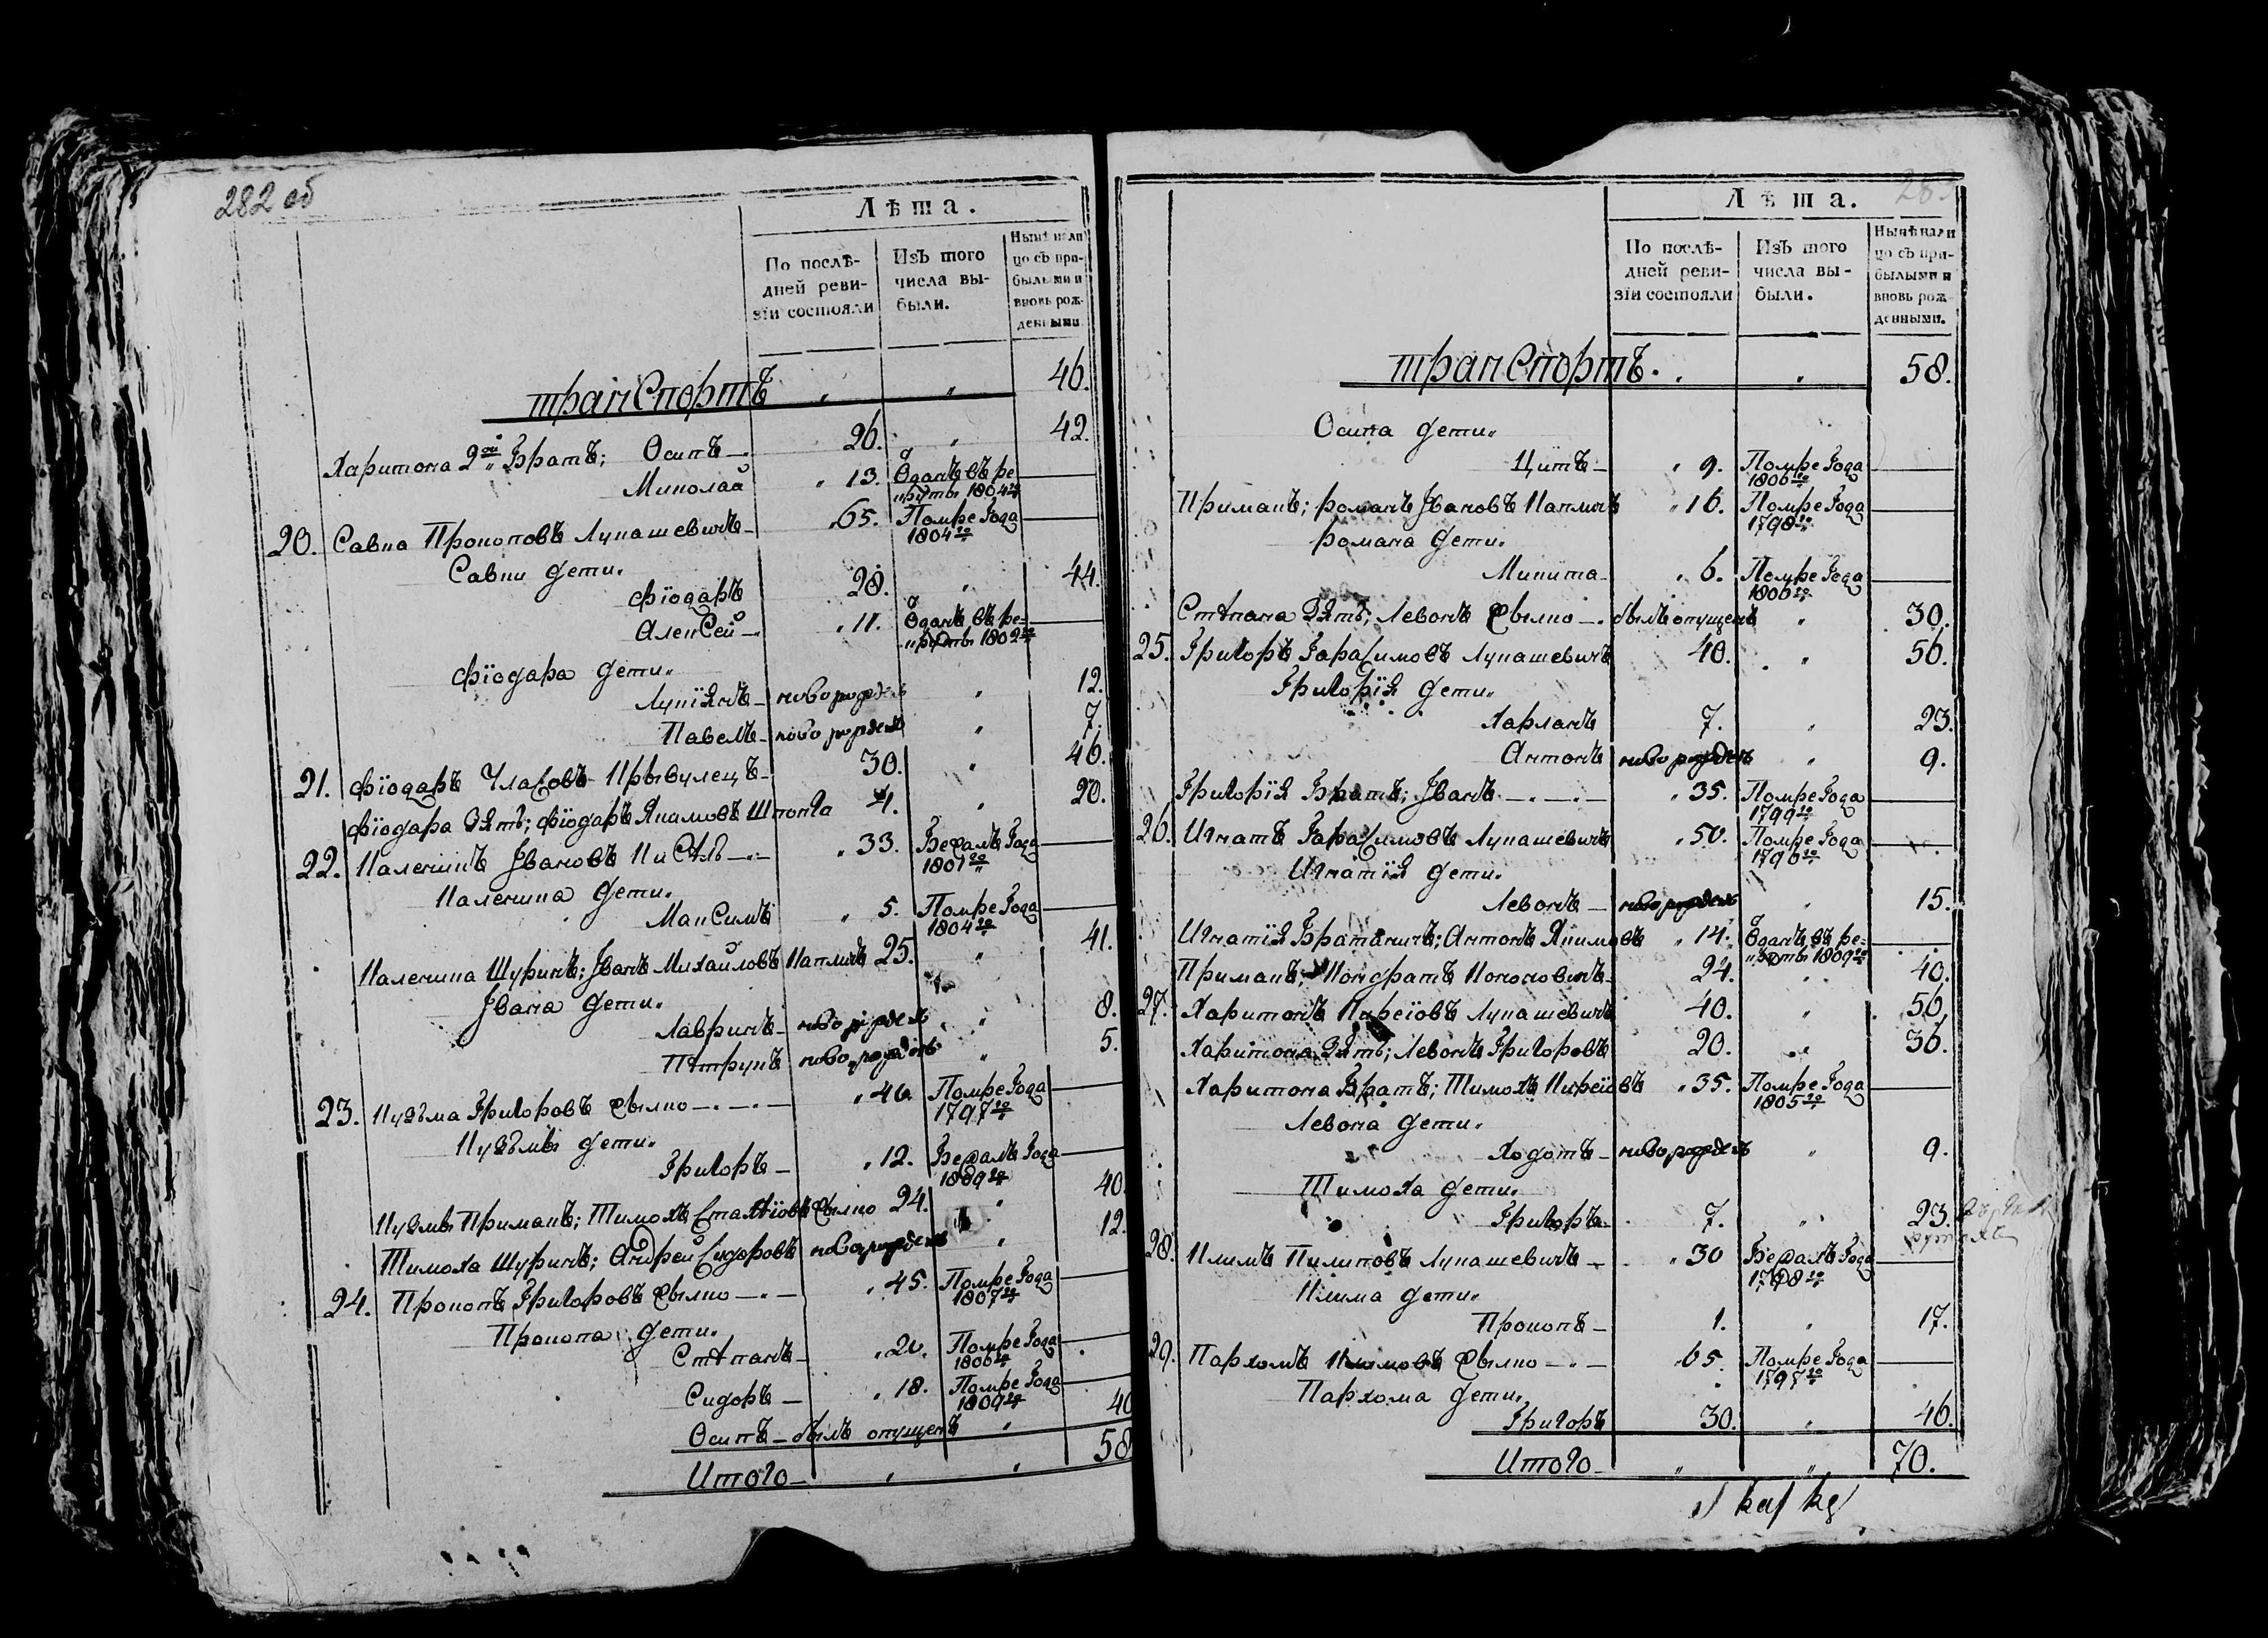 282 об
Лѣта.
По послѣ-
дней реви-
зiи состояли
Изъ того
числа вы-
были.
Нынѣ нали
цо съ при-
былыми и
вновь рож-
денными
транспортъ " " 46.
Харитона 2ой Братъ; Осипъ — 26. " 42.
Миколай " 13. Отданъ въ ре
круты 1804го
20. Савка Прокоповъ Лукашевичъ — " 65. Помре Года
1804го
Савки дети.
Фіодаръ 28. " 44.
Алексей — " 11. Отданъ въ ре=
круты 1802го
Фіодара дети.
Лукіянъ — новорожденъ " 12.
Павелъ — новорожденъ " 7.
21. Фіодаръ Уласовъ Крывулецъ — 30. " 46.
Фіодара Зять; Фіодаръ Якимовъ Шпонта 4. " 20.
22. Каленикъ Ивановъ Кисель — " 33. Бежалъ Года
1801го
Каленика дети.
Максимъ " 5. Помре Года
1804го
Каленика Шуринъ; Иванъ Михайловъ Капличъ 25. " 41.
Ивана дети.
Лавринъ — новорожденъ " 8.
Петрукъ новорожденъ " 5.
23. Кузьма Григоровъ Сылко — " 46. Помре Года
1797го
Кузьмы дети.
Григоръ — " 12. Бежалъ Года
1809го
Кузмы Примакъ; Тимохъ Стахіовъ Сылко 24. " 40.
Тимоха Шуринъ; Андрей Сидоровъ новорожденъ " 12.
24. Прокопъ Григоровъ Сылко — " 45. Помре Года
1807го
Прокопа дети.
Степанъ — " 20. Помре Года
1806го
Сидоръ — " 18. Помре Года
1809го
Осипъ — былъ опущенъ " 40
Итого — " " 58
Лѣта.
По послѣ-
дней реви-
зiи состояли
Изъ того
числа вы-
были.
Нынѣ нали
цо съ при-
былыми и
вновь рож-
денными.
транспортъ. " " 58.
Осипа дети.
Цитъ — " 9. Помре Года
1806го
Примакъ; Романъ Ивановъ Капличъ " 16. Помре Года
1798го
Романа дети.
Микита — " 6. Помре Года
1806го
Степана Зять; Левонъ Сылко — былъ опущенъ " 30.
25. Григоръ Гарасимовъ Лукашевичъ 40. " 56.
Григорія дети.
Харланъ 7. " 23.
Антонъ новорожденъ " 9.
Григорія Братъ; Иванъ — " 35. Помре Года
1799го
26. Игнатъ Гарасимовъ Лукашевичъ " 50. Помре Года
1796го
Игнатія дети.
Левонъ — новорожденъ " 15.
Игнатія Братаничъ; Антонъ Якимовъ " 14. Отданъ въ ре=
круты 1809го
Примакъ; Кондратъ Кононовичъ — 24. " 40.
27. Харитонъ Киреіовъ Лукашевичъ 40. " 56.
Харитона Зять; Левонъ Григоровъ 20. " 36.
Харитона Братъ; Тимохъ Киреіовъ " 35. Помре Года
1805го
Левона дети.
Ходотъ — новорожденъ " 9.
Тимоха дети.
Григоръ — 7. " 23.
28. Климъ Пилиповъ Лукашевичъ — " 30 Бежалъ Года
1798го
Клима дети.
Прокопъ — 1. " 17.
29. Пархомъ Климовъ Сылко — " 65. Помре Года
1797го
Пархома дети.
Григоръ 30. " 46.
Итого — " " 70.